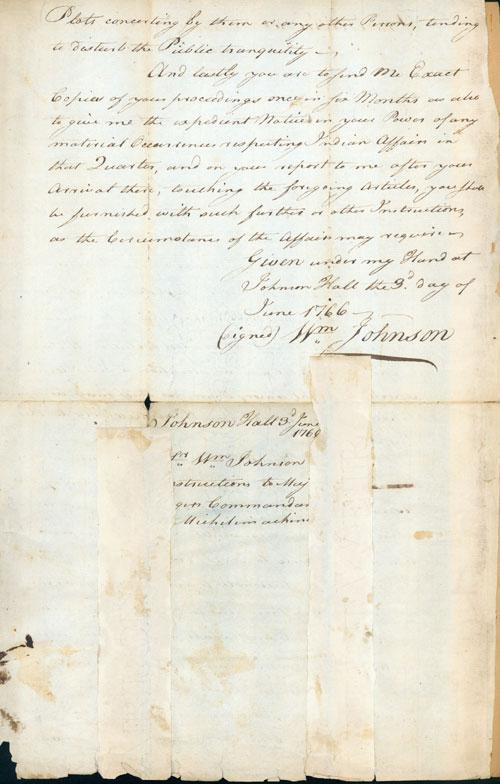 Plots concerting by them or any other Persons, tending
to disturb the Public tranquility
And lastly you are to send Me Exact
Copies of your proceedings once in six Months as also
to give me the expedient Notice in your Power of any
material Occurrences respecting Indian Affairs in
that Quarter, and on your report to me after your
Arrival there, touching the foregoing Articles, you shall
be furnished with such further or other Instructions,
as the Circumstances of the Affairs may require
Given under my Hand at
Johnson Hall the 3d. day of
June 1766
(signed) Wm Johnson
Johnson Hall 3d June
1766
Wm Johnson
structions to Maj
gers Commandan
Michilimackina